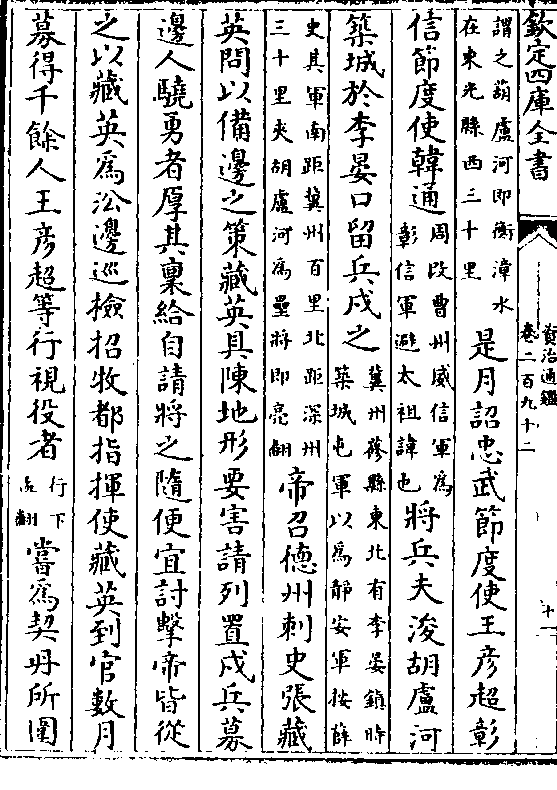 欽定四庫全書
資治通鑑
卷二百九十二
十一
謂之葫蘆河即衡漳水
在東光縣西三十里
是月詔忠武節度使王彥超彰
信節度使韓通
周改曹州威信軍為
彰信軍避太祖諱也
將兵夫浚胡盧河
築城於李晏口留兵戍之
冀州蓨縣東北有李晏鎮時
築城屯軍以為靜安軍按薛
史其軍南距冀州百里北距深州
三十里夾胡盧河為壘將即亮翻
帝召德州刺史張藏
英問以備邊之策藏英具陳地形要害請列置戍兵募
邊人驍勇者厚其稟給自請將之隨便宜討擊帝皆從
之以藏英爲沿邊巡檢招收都指揮使藏英到官數月
募得千餘人王彥超等行視役者
行下
孟翻
嘗爲契丹所圍